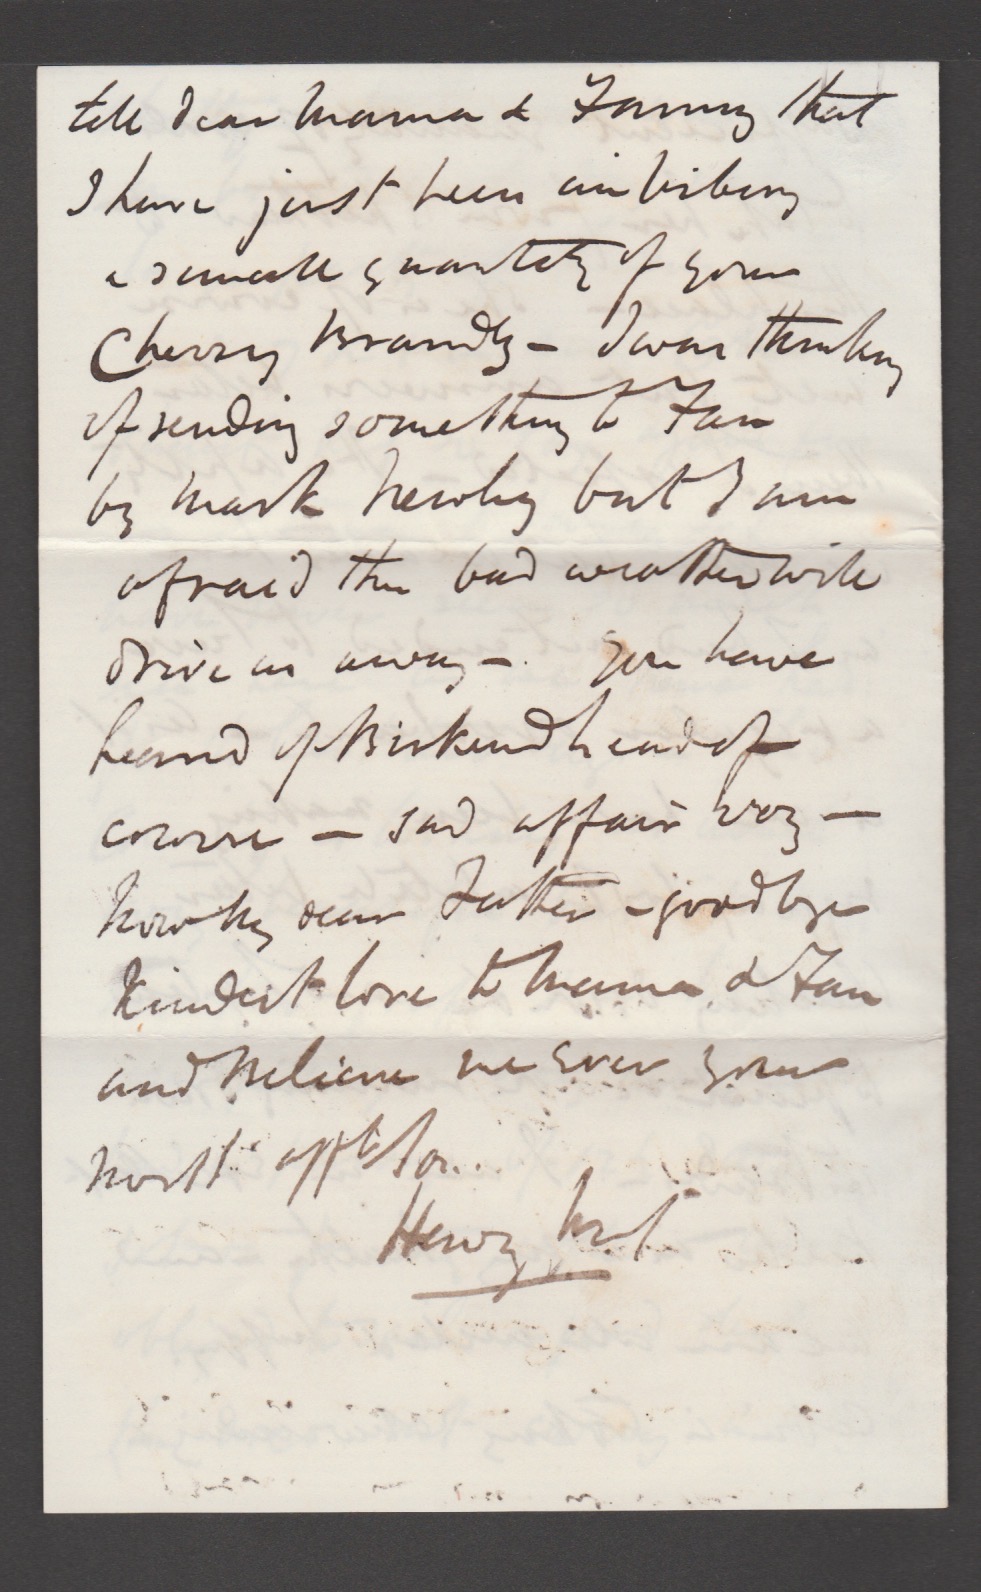 tell dear Mama & Fanny that
I have just been imbibing
a small quantity of your
Cherry Brandy – I was thinking
of sending something to Fan
by Mark Newby but I am
afraid this bad weather will
drive us away –. You have
heard of Birkendhead of
course – sad affair very –
Now My dear Father – goodbye
Kindest love to Mama & Fan
and believe me Ever your
most affte Son..
Henry